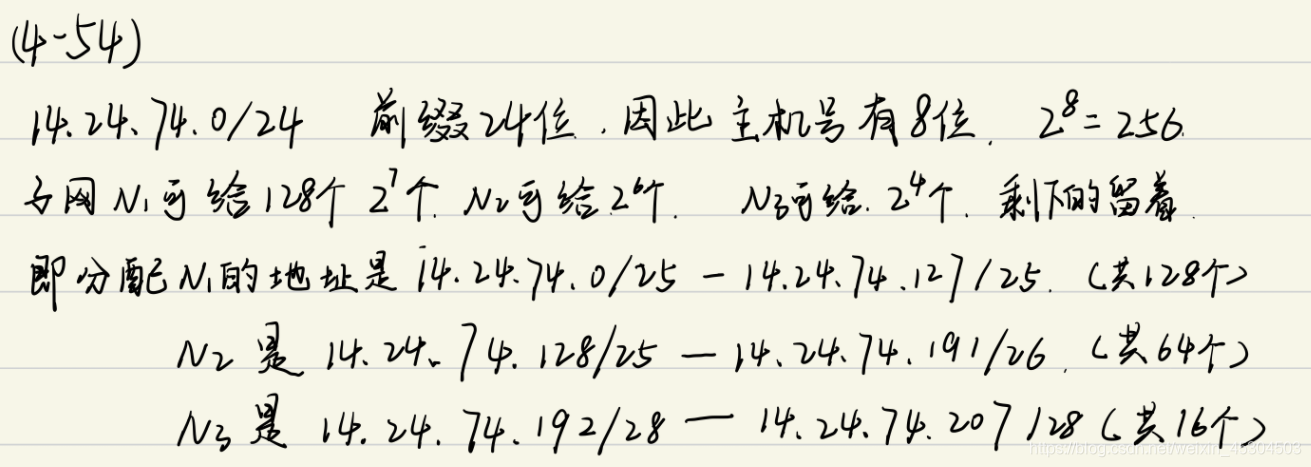 (4-54)
14.24.74.0/24 前缀24位,因此主机号有8位. 2⁸=256.
子网N₁可给128个 2⁷个. N₂可给2⁶个. N₃可给. 2⁴个. 剩下的留着.
即分配N₁的地址是 14.24.74.0/25 - 14.24.74.127/25. (共128个)
N₂ 是 14.24.74.128/25 - 14.24.74.191/26. (共64个)
N₃ 是 14.24.74.192/28 - 14.24.74.207/28 (共16个)